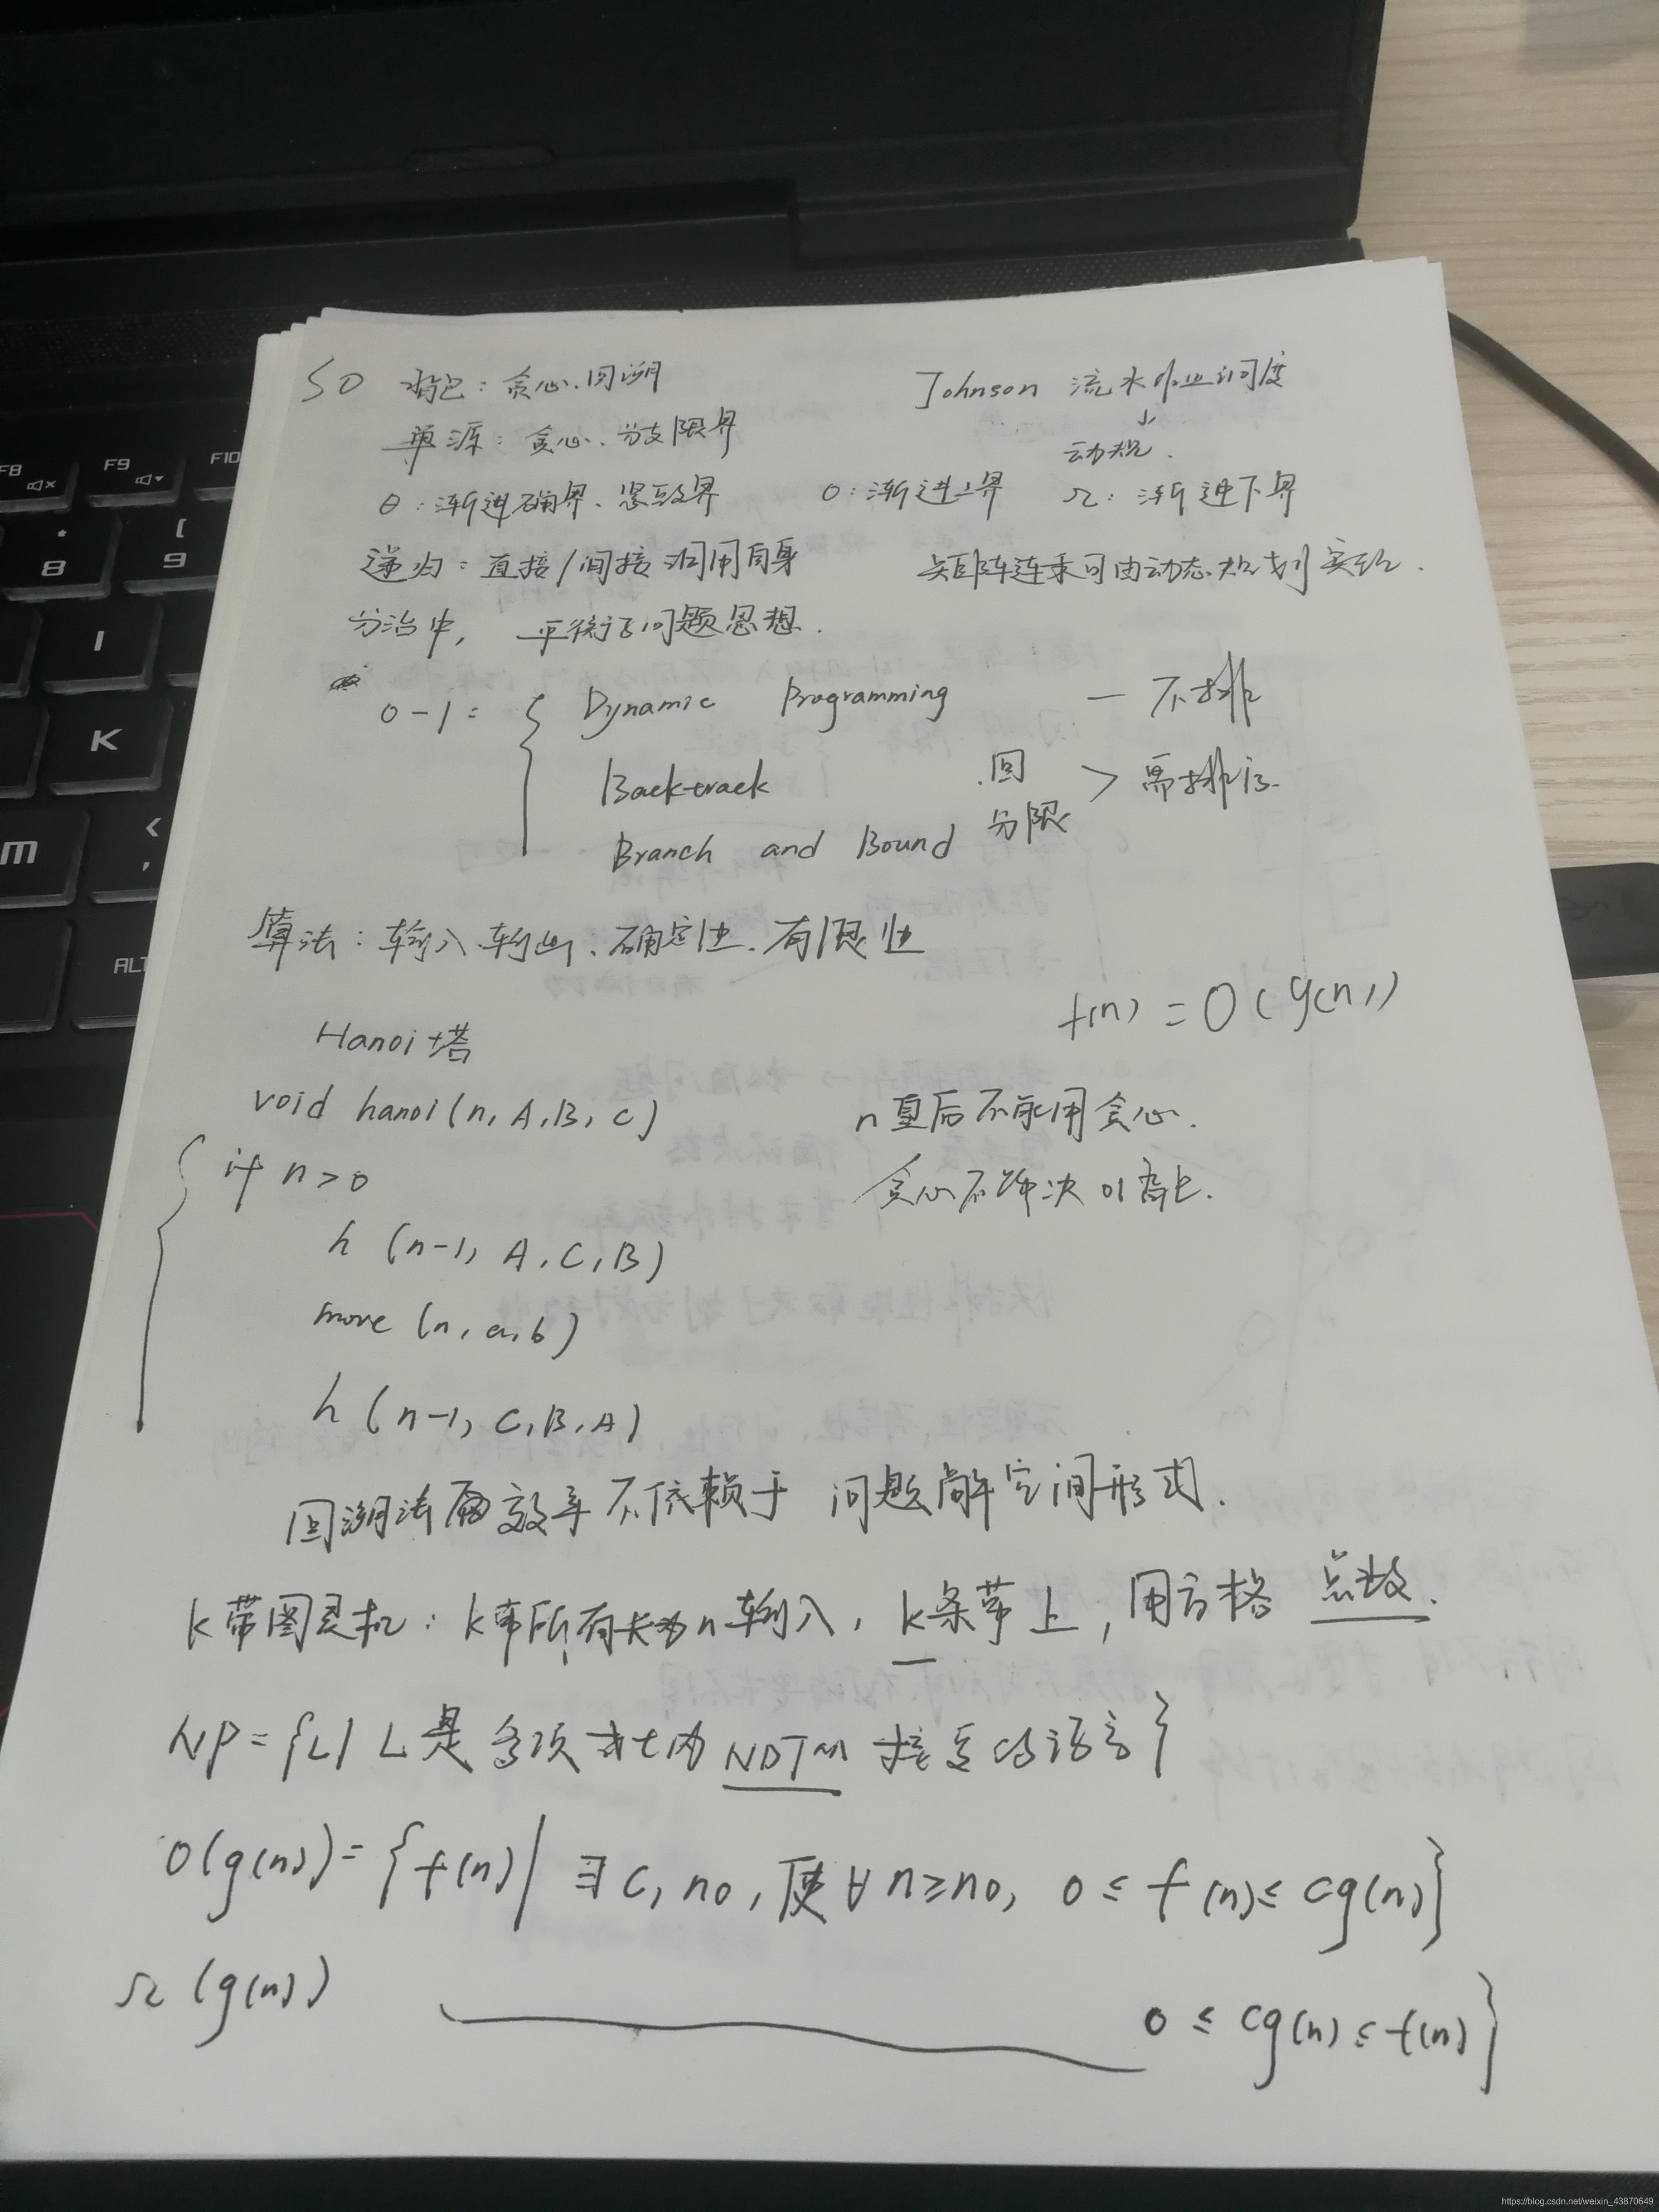 SO 背包：贪心、回溯
Johnson 流水作业调度
↓
动规.
单源：贪心、分支限界
θ：渐进确界、紧致界 O：渐进上界 Ω：渐进下界
递归：直接/间接调用自身 矩阵连乘可由动态规划实现.
分治中，平衡子问题思想.
0-1= { Dynamic Programming — 不排
Backtrack 回
Branch and Bound 分限 > 需排序.
算法：输入、输出、确定性、有限性
f(n) = O(g(n))
Hanoi塔
void hanoi(n, A, B, C)
{ if n>0
h (n-1, A, C, B)
move (n, a, b)
h (n-1, C, B, A)
n皇后不能用贪心.
贪心不解决01背包.
回溯法 效率不依赖于 问题解空间形式.
k带图灵机：k带所有长为n输入，k条带上，用方格 总数.
NP={L| L是多项式t内 NDTM 接受的语言}
O(g(n))={f(n)| ∃ c, n0, 使∀n≥n0, 0≤f(n)≤cg(n)}
Ω(g(n)) 0≤cg(n)≤f(n)}
F8
F9
F10
*
8
[
9
I
K
M
<
,
ALT
https://blog.csdn.net/weixin_43870649